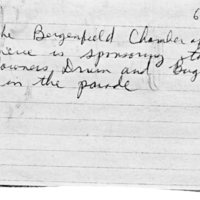 6
the Bergenfield Chamber of
merce is sponsoring the
owners Drum and Bug
in the parade